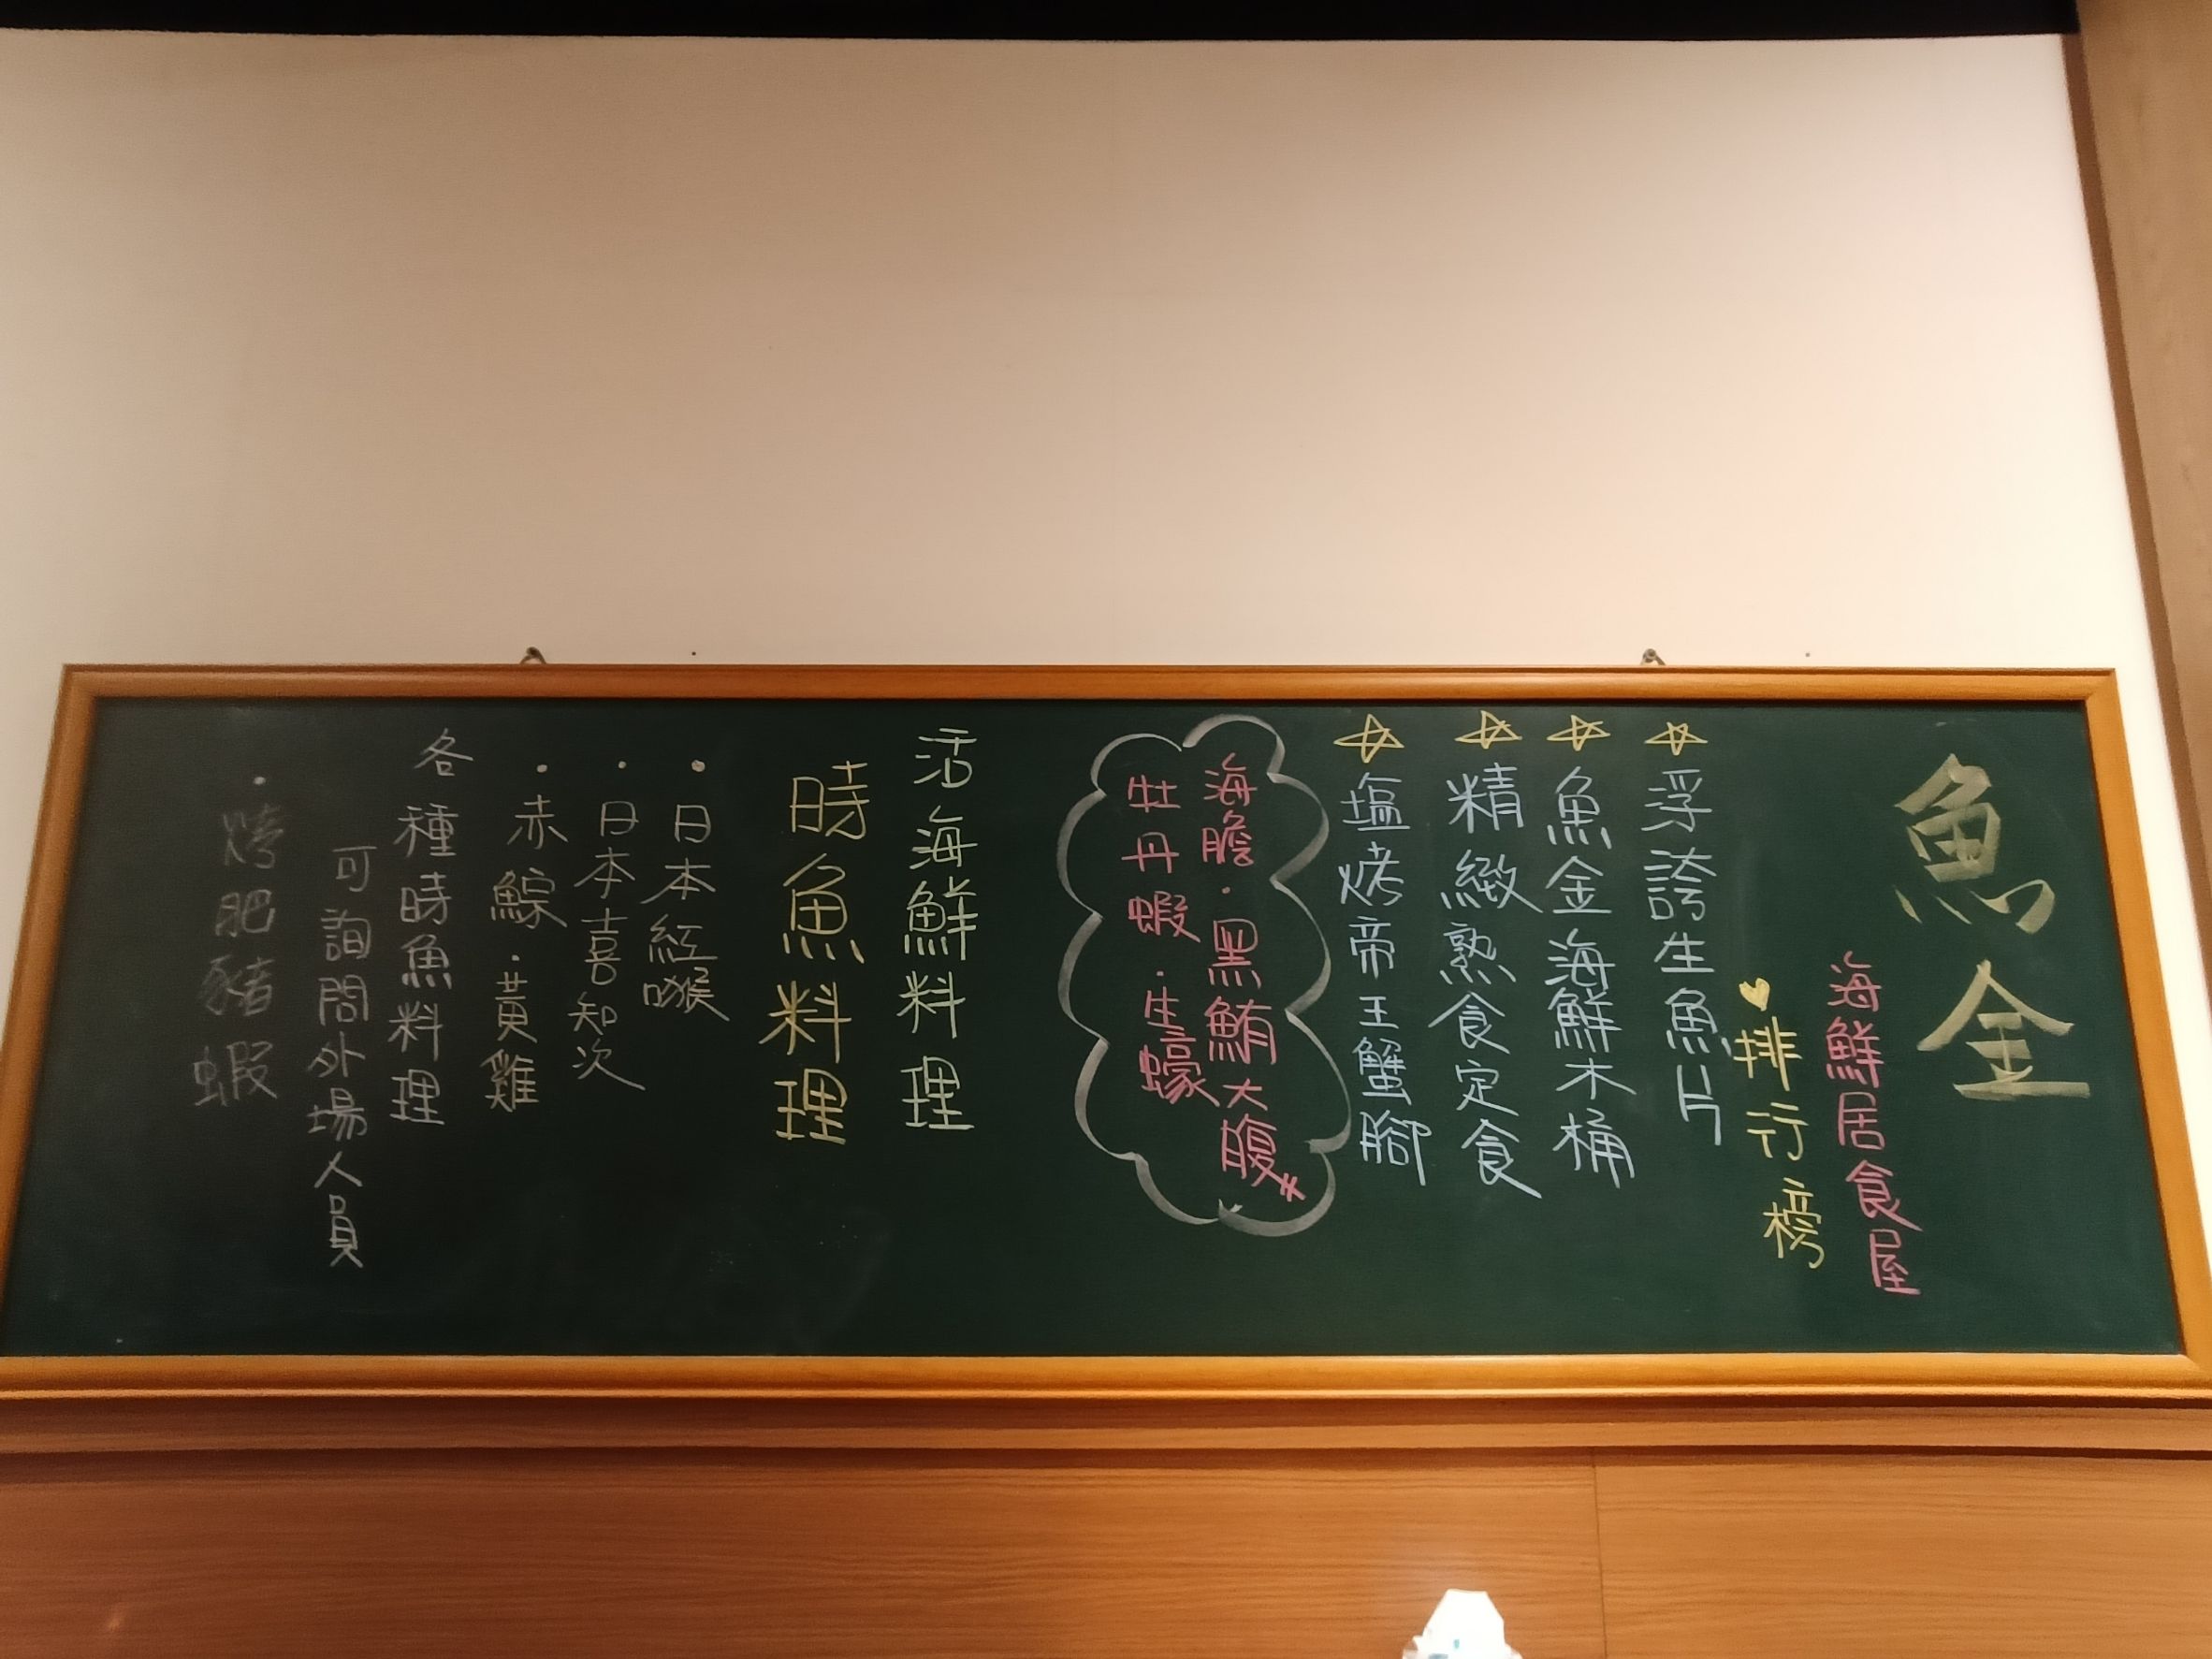 魚金
海鮮居食屋
排行榜
浮誇生魚片
魚金海鮮木桶
精緻熟食定食
塩烤帝王蟹腳
海膽・黑鮪大腹
牡丹蝦・生蠔
活海鮮料理
時魚料理
・日本紅喉
・日本喜知次
・赤鯮・黃雞
各種時魚料理
可詢問外場人員
・烤肥豬蝦